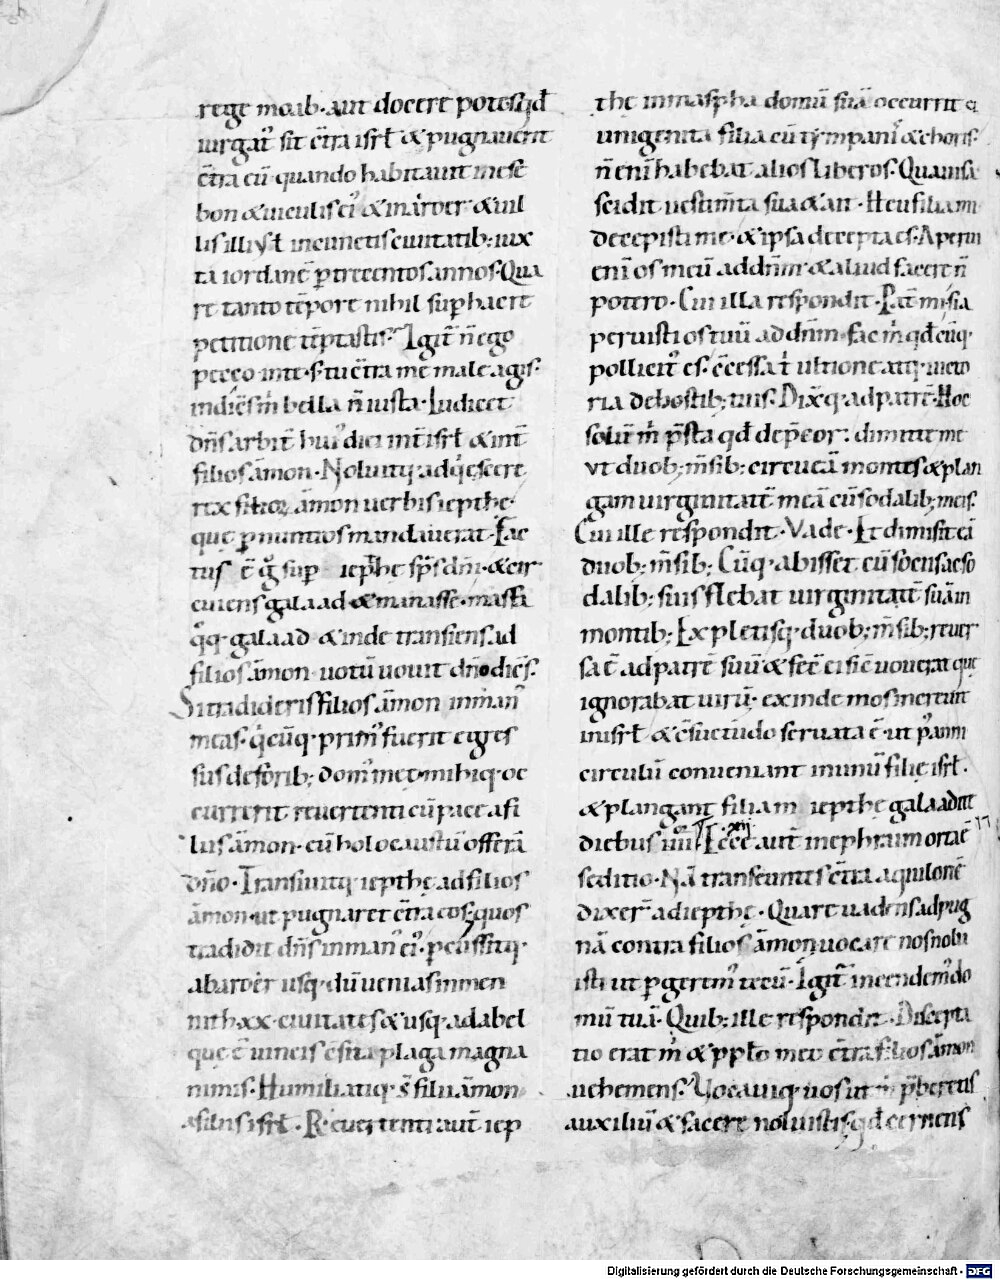 rege moab· aut docere potes qd̄
iurgat᷒ sit c̄tra isrł & pugnauerit
c̄tra eū· quando habitauit in ese
bon & uiculis ei᷒ & in aroer & uil
lis illi᷒ ł in cunctis ciuitatib; iux
ta iordanē p̱ trecentos annos· Qua
re tanto tēpore nihil suꝑ hac re
petitione tēptastis· Igit̄ n̄ ego
pecco inte· s; tu c̄tra me male agis·
indicēs m̄ bella n̄ iusta· Iudicet
dn̄s arbit̄ hui᷒ diei int̄ isrł & int̄
filios āmon· Noluitq; adq̇escere
rex filioꝝ āmon uerbis iepthe·
que ꝑ nuntios mandauerat· Fac
tus ē g̊ sup iepthe sp̄s dn̄i· & cir
cuiens galaad & manasse· maspha
q̊q; galaad & inde transiens ad
filios āmon uotū uouit dn̄o dicēs·
Si tradideris filios āmon in man᷒
meas· q̇cūq; prim᷒ fuerit egres
sus de forib; dom᷒ meę· mihiq; oc
currerit reuertenti cū pace a fi
liis āmon· eū holocaustū offerā
dn̄o· Transiuitq; iepthe ad filios
āmon· ut pugnaret c̄tra eos; quos
tradidit dn̄s in man᷒ ei᷒· ꝑcussitq;
ab aroer usq; dū uenias in men
nith xx· ciuitates & usq; ad abel
que ē uineis c̄sita plaga magna
nimis· Humiliatiq; s̄ filii āmon
a filiis isrł· Reuertenti aut̄ iep
the in maspha domū suā occurrit ei
unigenita filia cū tympanis & choris·
n̄ eni᷒ habebat alios liberos· Qua uisa
scidit uestim̄ta sua & ait· Heu filia mi
decepisti me· & ipsa decepta es· Aperui
enī os meū ad dn̄m· & aliud facere n̄
potero· Cui illa respondit· Pat̄ mi si a
peruisti os tuū ad dn̄m· fac m̄ qd̄cūq;
pollicit᷒ es· c̄cessa t̄ ultione atq; uicto
ria de hostib; tuis· Dixq; ad patrē· Hoc
solū m̄ p̄sta qd̄ dep̄cor: dimitte me
vt duob; m̄sib; circueā montes & plan
gam uirginitatē meā cū sodalib; meis·
Cui ille respondit· Vade· Et dimisit eā
duob; m̄sib; Cūq; abisset cū sociis ac so
dalib; suis flebat uirginitatē suā in
montib; Expletisq; duob; m̄sib; reuer
sa ē ad patrē suū & fec̄ ei sic̄ uouerat que
ignorabat uirū· exinde mos increuit
in isrł & c̄suetudo seruata ē· ut p᷒ anni
circulū conueniant in unū filię isrł·
& plangant filiam iepthę galaaditę
diebus iiii· Ecce aut̄ in ephraim orta ē
seditio· Nā transeuntes c̄tra aquilonē
dixer̄ ad iepthę· Quare uadens ad pug
nā contra filios āmon uocare nos nolu
isti ut ꝑgerem᷒ tecū· Igit̄ incendem᷒ do
mū tuā· Quib; ille respondit· Discepta
tio erat m̄ & pplo meo c̄tra filios āmon
uehemens· Vocauiq; uos ut m̄ p̄beretis
auxiliū & facere noluistis· qd̄ cernens
xij
Digitalisierung gefördert durch die Deutsche Forschungsgemeinschaft - DFG